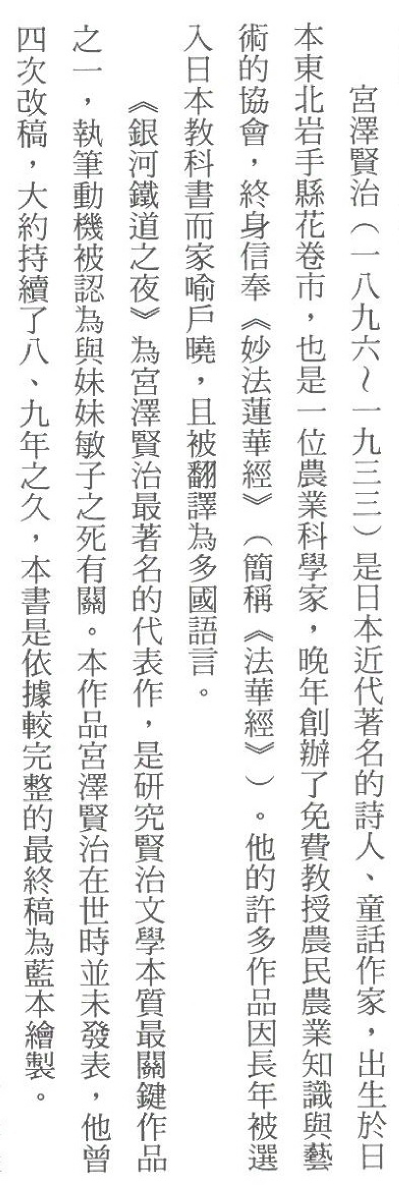 宮澤賢治（一八九六～一九三三）是日本近代著名的詩人、童話作家，出生於日
本東北岩手縣花卷市，也是一位農業科學家，晚年創辦了免費教授農民農業知識與藝
術的協會，終身信奉《妙法蓮華經》（簡稱《法華經》）。他的許多作品因長年被選
入日本教科書而家喻戶曉，且被翻譯為多國語言。
《銀河鐵道之夜》為宮澤賢治最著名的代表作，是研究賢治文學本質最關鍵作品
之一，執筆動機被認為與妹妹敏子之死有關。本作品宮澤賢治在世時並未發表，他曾
四次改稿，大約持續了八、九年之久，本書是依據較完整的最終稿為藍本繪製。